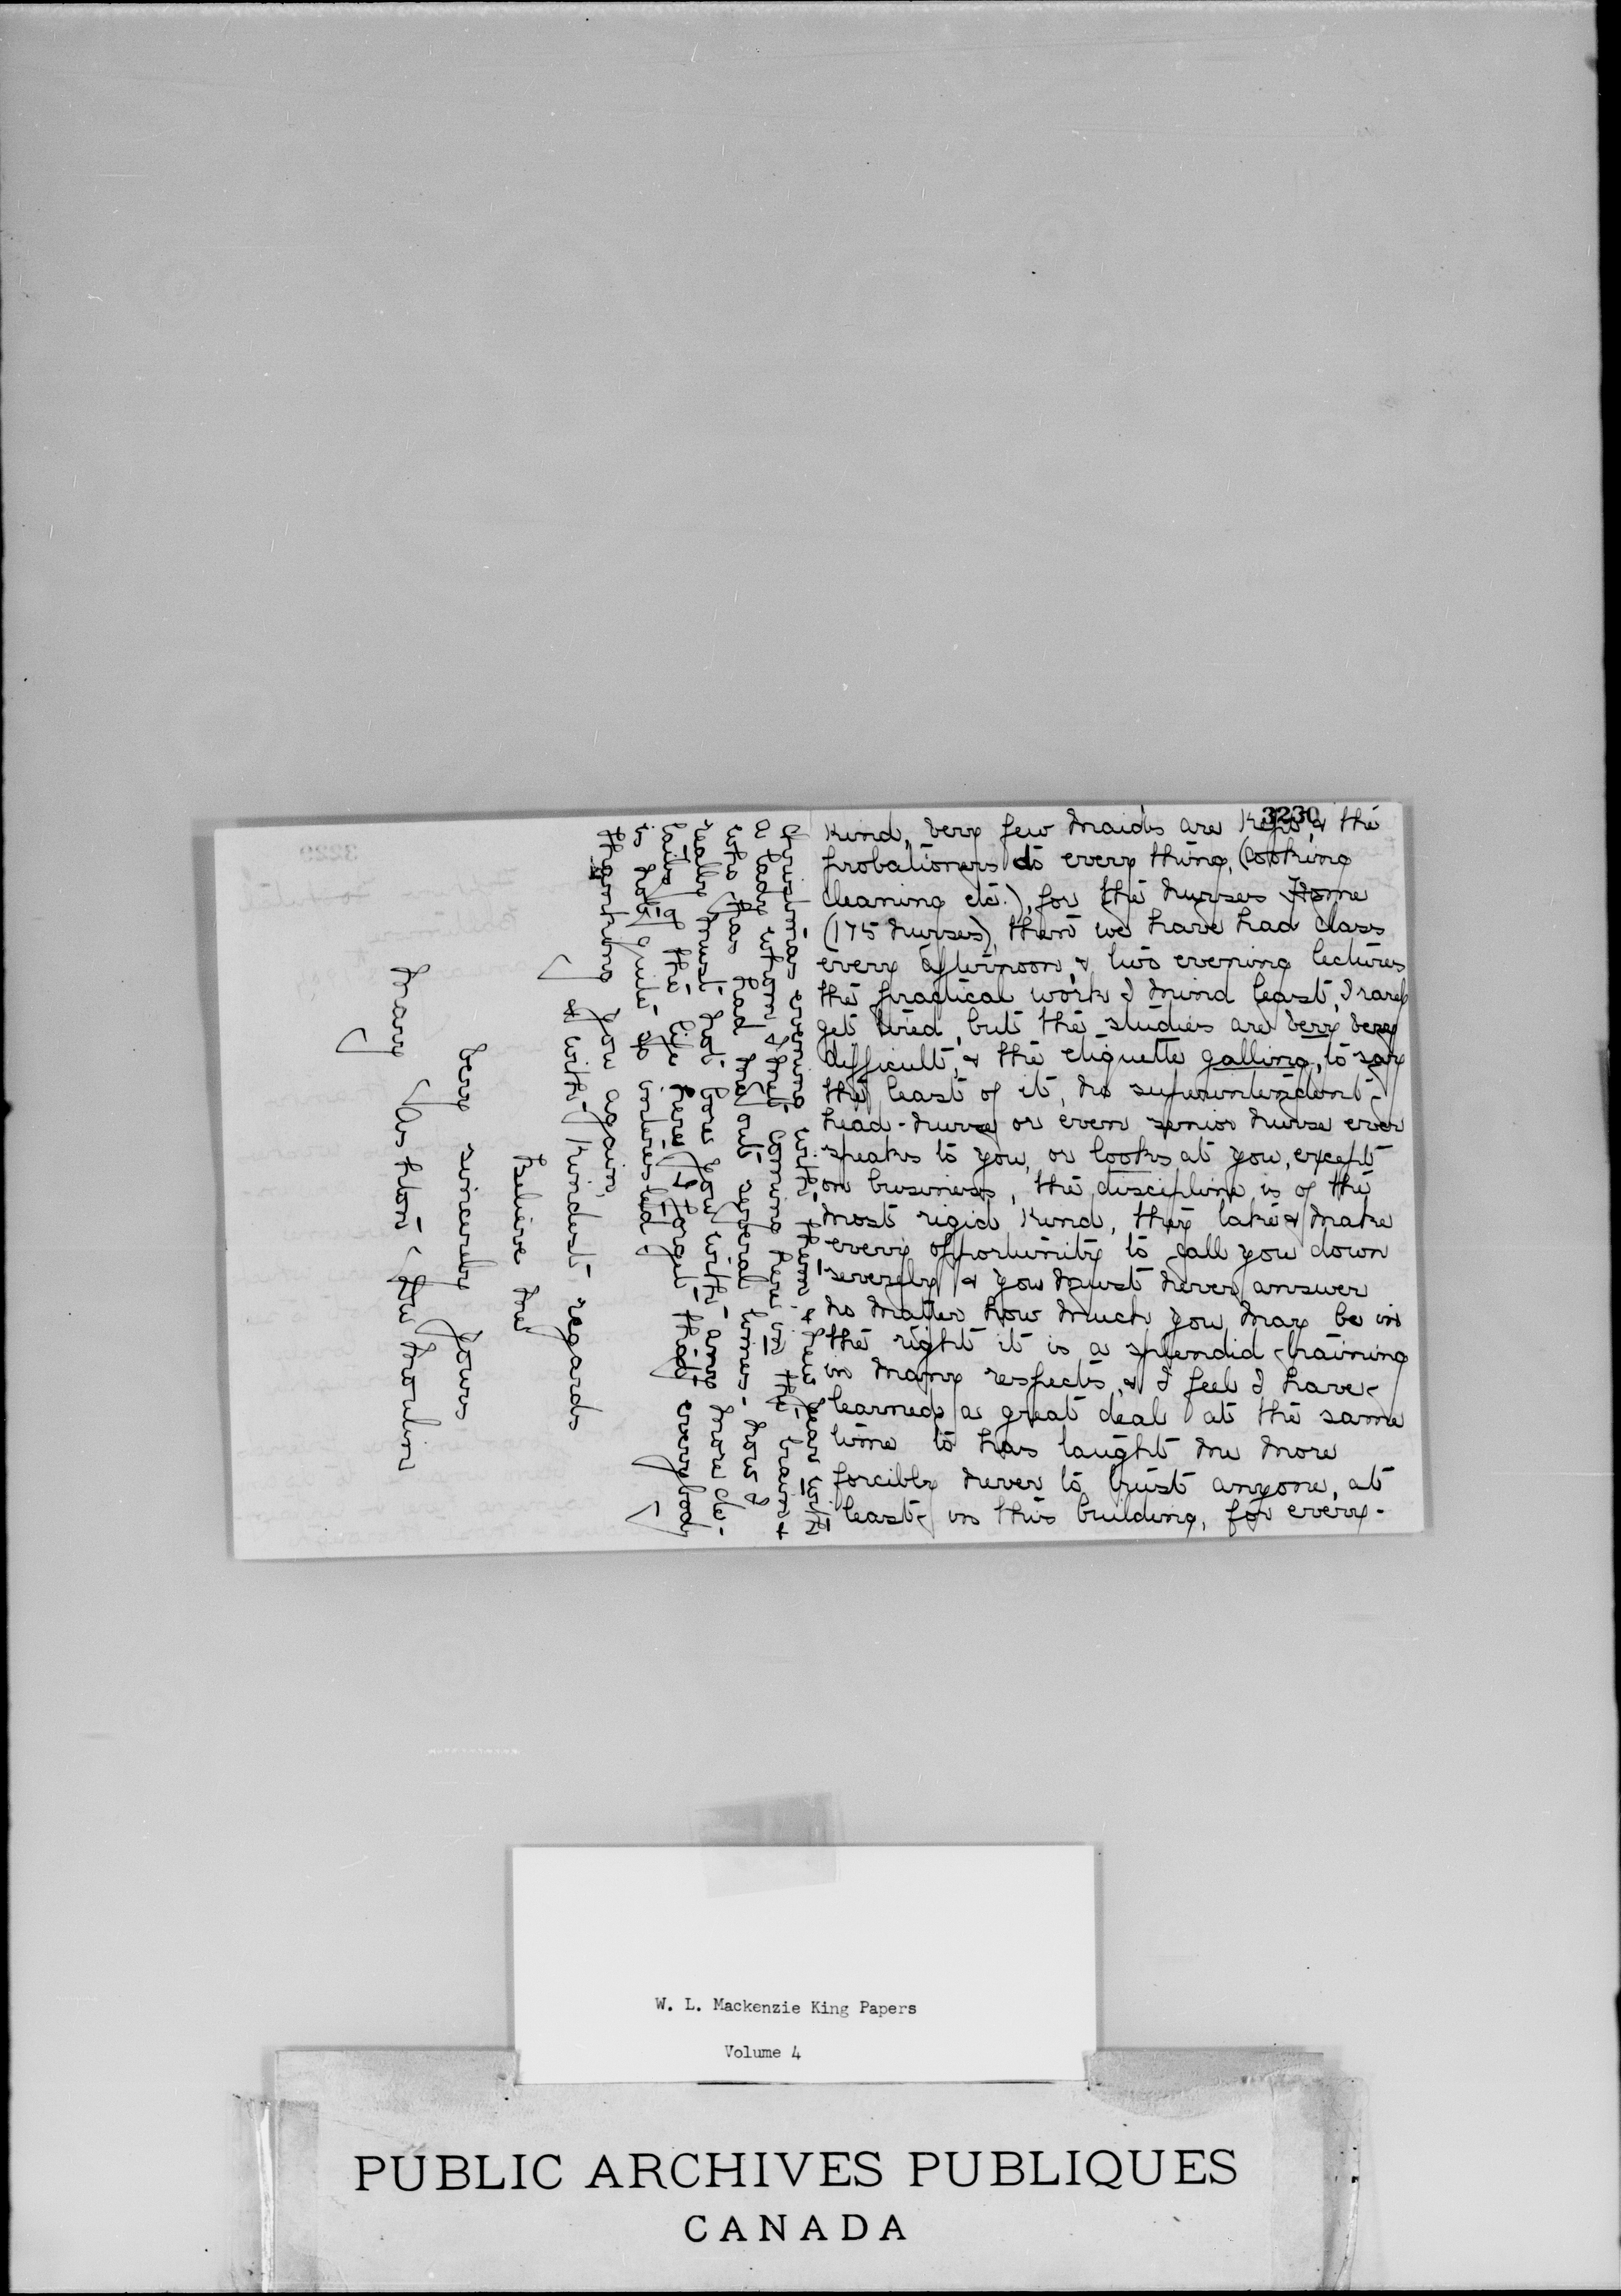 3230
kind, very few maids are kept, & the
probationers do every thing, (cooking
cleaning etc.), for the nurses Home
(175 nurses), then we have had class
every afternoon, & two evening lectures
the practical work I mind least, I rarely
get tired, but the studies are very very
difficult, & the etiquette galling, to say
the least of it, no superintendent-
head-nurse or even senior nurse ever
speaks to you, or looks at you, except
on business, the discipline is of the
most rigid kind, they take & make
every opportunity to call you down
severely & you must never answer
no matter how much you may be in
the right it is a splendid training
in many respects, & I feel I have
learned a great deal at the same
time to has taught me more
forcibly never to trust anyone, at
least in this building, for every-
Christmas evening with them & New Year with
a lady whom I met coming here in the train &
who has had me out several times - now I
really must not bore you with any more de-
tails of the life here, I forget that everybody
is not quite so interested
thanking you again,
& with kindest regards
Believe me
very sincerely yours
Mary Ashton Du Moulin
3229
W. L. Mackenzie King Papers
Volume 4
PUBLIC ARCHIVES PUBLIQUES
CANADA